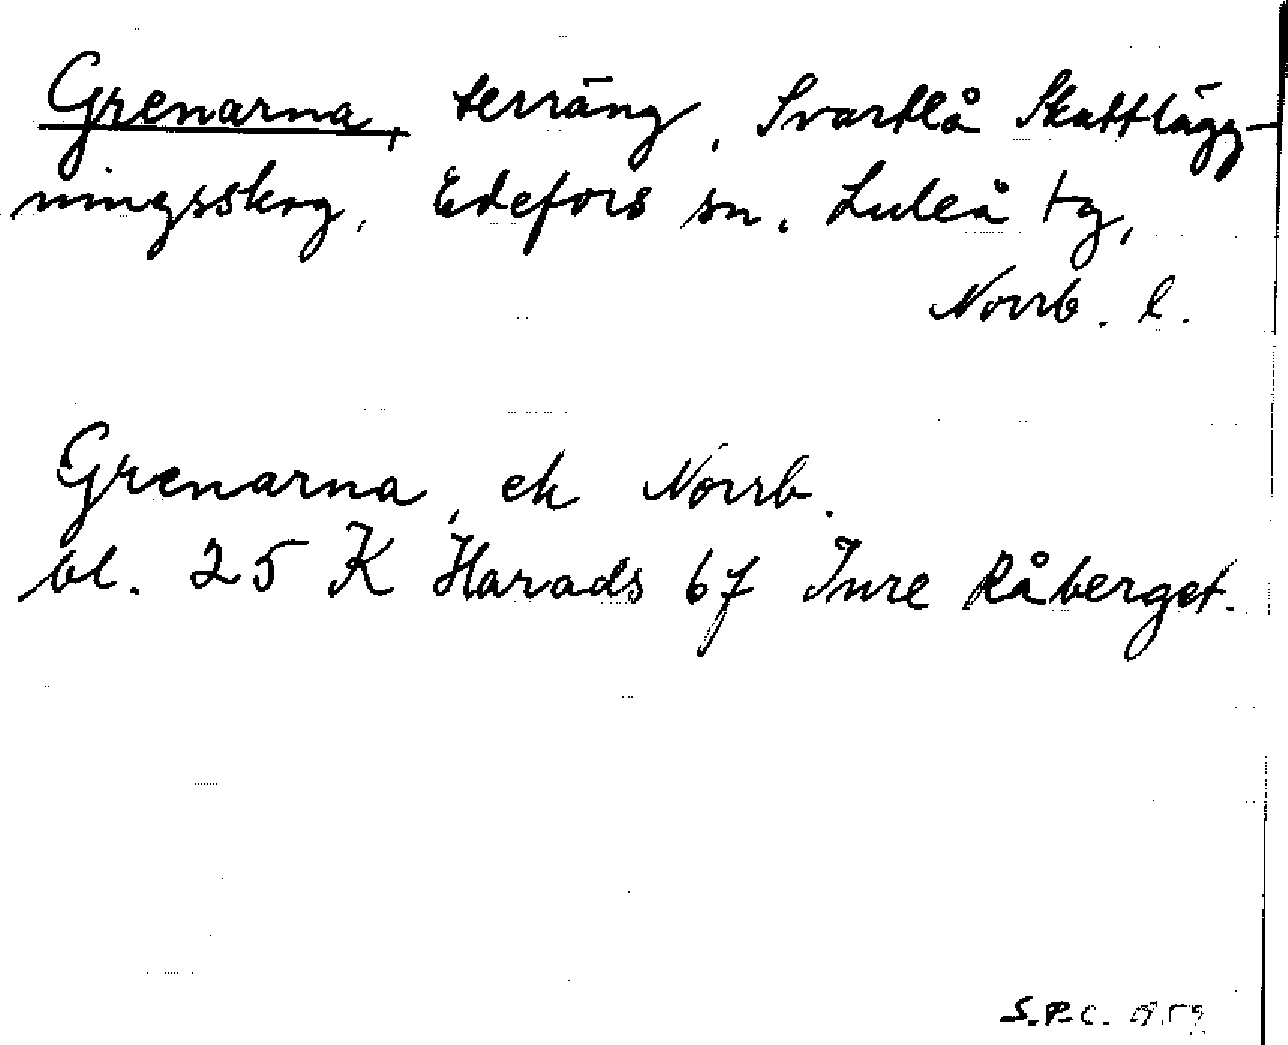 Grenarna, terräng, Svartlå Skattlägg-
ningsskog, Edefors sn. Luleå tg,
Norrb. l.
Grenarna, ek Norrb.
bl. 25 K Harads 6f Inre Råberget.